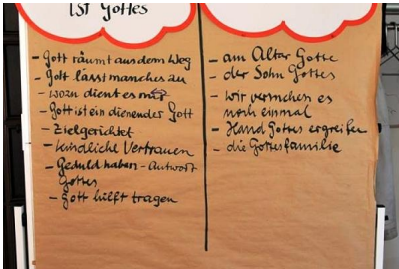 IST Gottes
- Gott räumt aus dem Weg
- Gott lässt manches zu
- wozu dient es mir
- Gott ist ein dienender Gott
- Zielgerichtet
- kindliche Vertrauen
- Geduld haben - Antwort
Gottes
- Gott hilft tragen
- am Altar Gotte
- der Sohn Gottes
- wir versuchen es
noch einmal
- Hand Gottes ergreifen
- die Gottesfamilie